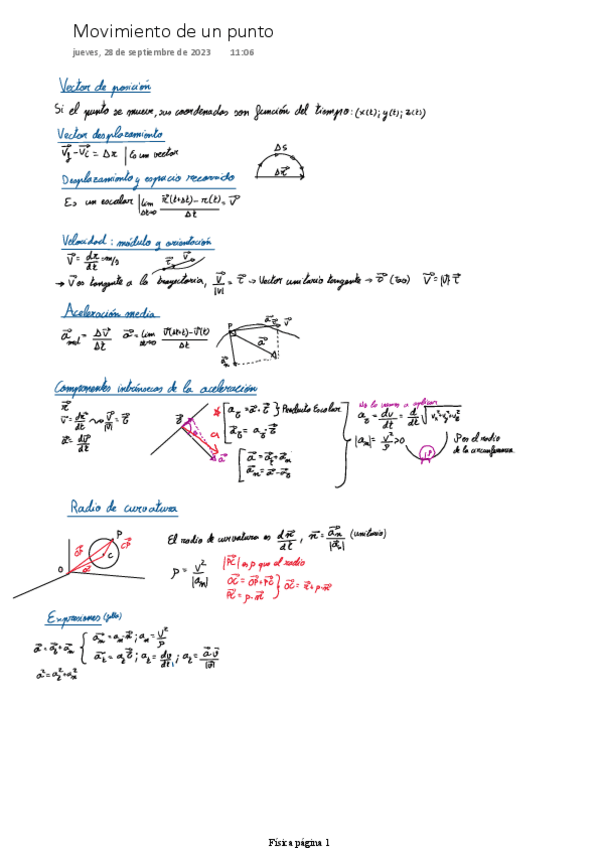 Movimiento de un punto
jueves, 28 de septiembre de 2023 11:06
Vector de posición
Si el punto se mueve, sus coordenadas son función del tiempo: (x(t); y(t); z(t))
Vector desplazamiento
V⃗f - V⃗i = Δr | Es un vector
ΔS
Δr⃗
Desplazamiento y espacio recorrido
Es un escalar | lim Δt→0 (r⃗(t+Δt) - r(t))/Δt = V⃗
Velocidad: módulo y orientación
V⃗ = dr⃗/dt = m/s
→ V⃗ es tangente a la trayectoria, V⃗/|V| = τ⃗ → Vector unitario tangente → τ⃗ (tao) V⃗ = |V| τ⃗
Aceleración media
a⃗med = ΔV⃗/Δt a⃗ = lim Δt→0 (V⃗(Δt+t) - V⃗(t))/Δt
Componentes intrínsecas de la aceleración
r⃗
V⃗ = dr⃗/dt → V⃗/|V⃗| = τ⃗
a⃗ = dV⃗/dt
aτ = a⃗ · τ⃗ } Producto Escalar
a⃗τ = aτ · τ⃗
a⃗ = a⃗τ + a⃗n
a⃗n = a⃗ - a⃗τ
no lo vamos a aplicar
aτ = dv/dt = d/dt √(vx² + vy² + vz²)
|an| = v²/ρ > 0
ρ es el radio de la circunferencia
Radio de curvatura
O
P
C
El radio de curvatura es dr⃗/dt, n⃗ = a⃗n/|a⃗n| (unitario)
ρ = V²/|an|
|PC⃗| es ρ que el radio
OC⃗ = OP⃗ + PC⃗
PC⃗ = ρ · n⃗
} OC⃗ = r⃗ + ρ · n⃗
Expresiones
a⃗ = a⃗t + a⃗n
{ a⃗n = an · n⃗ ; an = v²/ρ
a⃗t = at τ⃗ ; at = dv/dt ; at = a⃗ · v⃗/|v⃗|
a² = at² + an²
Física página 1